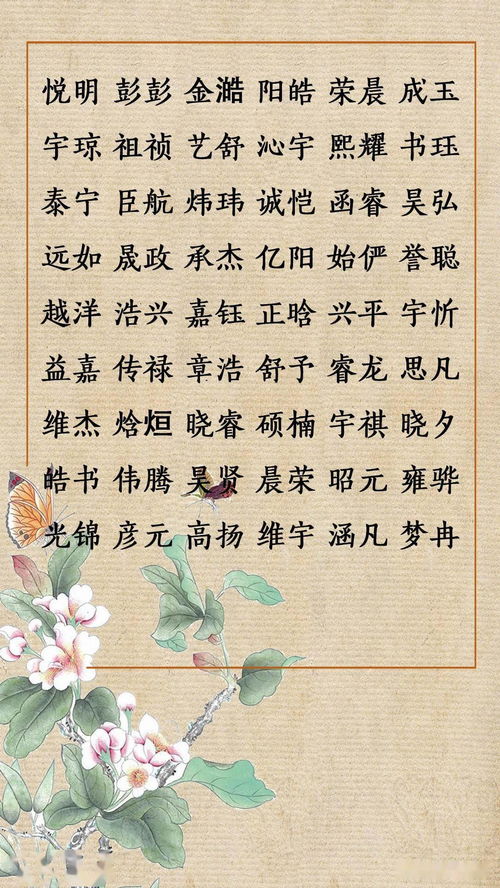 悦明 彭彭 金澔 阳皓 荣晨 成玉
宇琼 祖祯 艺舒 沁宇 熙耀 书珏
泰宁 臣航 炜玮 诚恺 函睿 昊弘
远如 晟政 承杰 亿阳 始俨 誉聪
越洋 浩兴 嘉钰 正晗 兴平 宇忻
益嘉 传禄 章浩 舒予 睿龙 思凡
维杰 焓烜 晓睿 硕楠 宇祺 晓夕
皓书 伟腾 昊贤 晨荣 昭元 雍骅
光锦 彦元 高扬 维宇 涵凡 梦冉